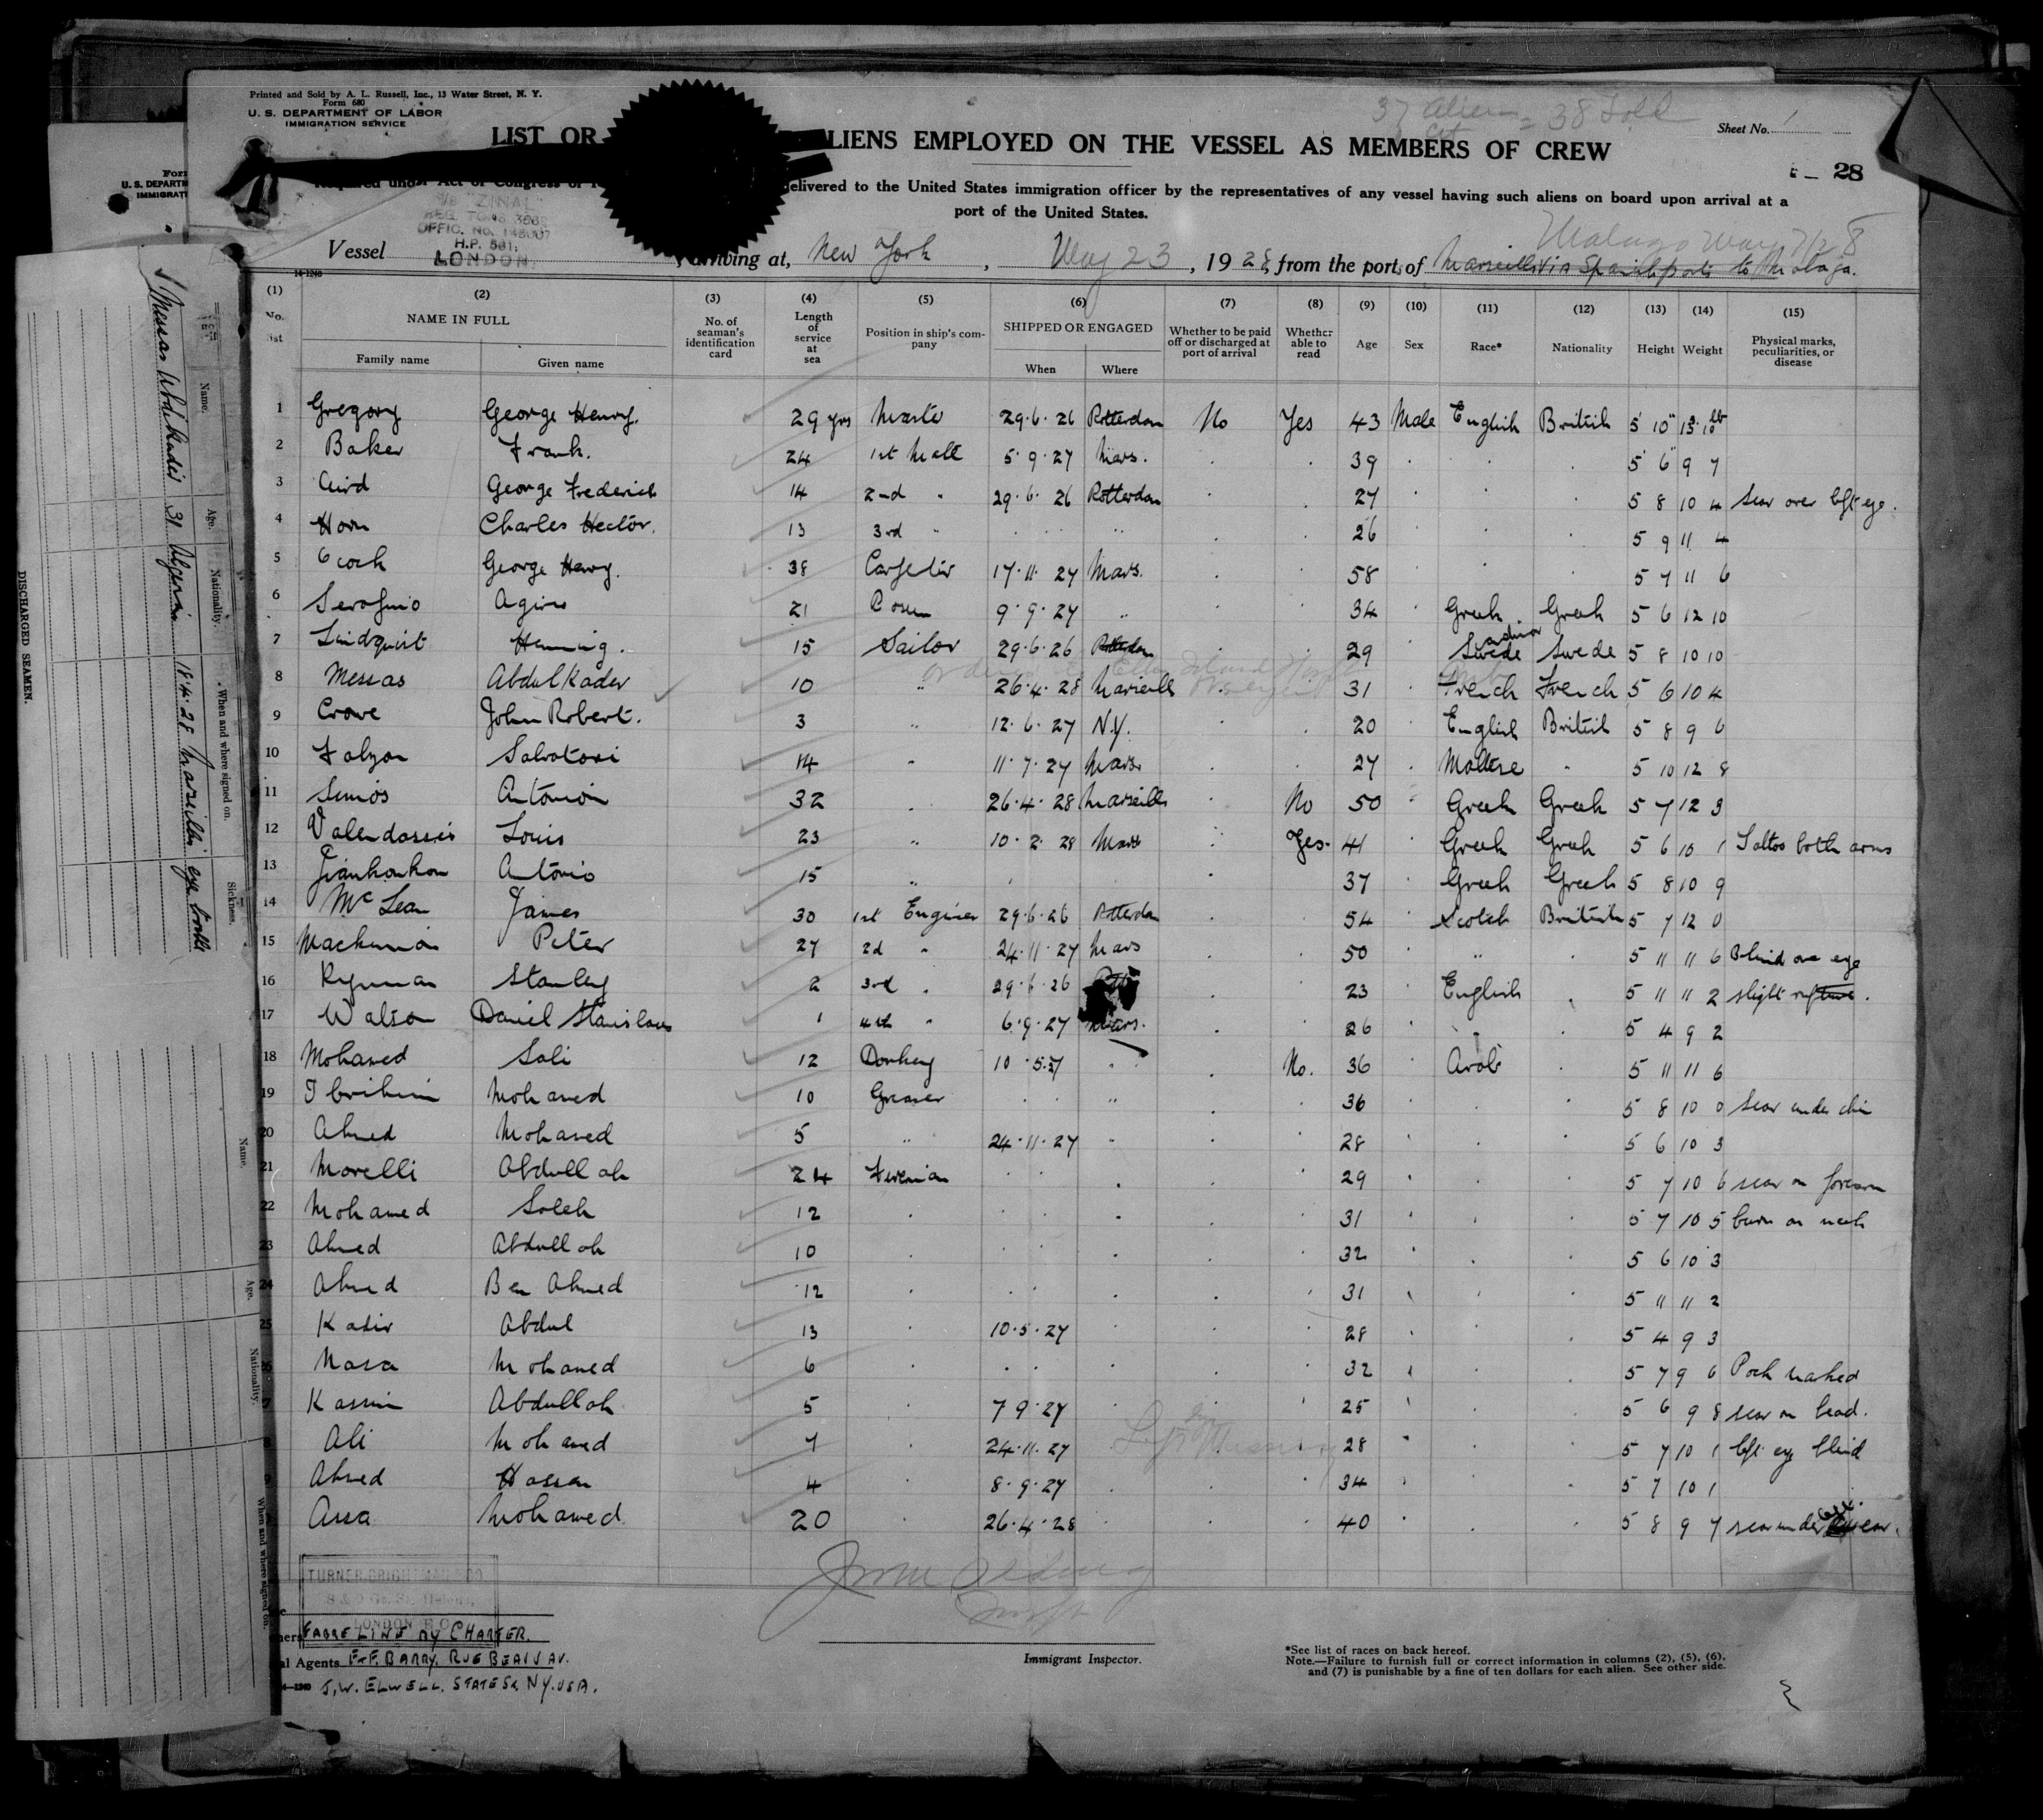 Printed and Sold by A. L. Russell, Inc., 13 Water Street, N. Y.
Form 680
U. S. DEPARTMENT OF LABOR
IMMIGRATION SERVICE
37 Alien = 38 Told
Sheet No. 1
LIST OR ALIENS EMPLOYED ON THE VESSEL AS MEMBERS OF CREW
28
Required under Act of Congress of delivered to the United States immigration officer by the representatives of any vessel having such aliens on board upon arrival at a
port of the United States.
S/S "ZINAL"
OFFIC. NO.
H.P. 581.
LONDON
Malaga May 7/28
Vessel , arriving at, New York , May 23 , 1928, from the port of Marseilles via Spanish ports to Malaga.
14-1240
(1) (2) (3) (4) (5) (6) (7) (8) (9) (10) (11) (12) (13) (14) (15)
No. NAME IN FULL No. of seaman's identification card Length of service at sea Position in ship's company SHIPPED OR ENGAGED Whether to be paid off or discharged at port of arrival Whether able to read Age Sex Race* Nationality Height Weight Physical marks, peculiarities, or disease
Family name Given name When Where
1 Gregory George Henry. 29 yrs Master 29.6.26 Rotterdam No Yes 43 Male English British 5' 10"
2 Baker Frank. 24 1st Mate 5.9.27 Mars. 39 5' 6" 9 7
3 Aird George Frederick 14 2nd " 29.6.26 Rotterdam 27 5 8 10 4 Scar over left eye.
4 Horn Charles Hector. 13 3rd " 26 5 9 11 4
5 George Henry. 38 Carpenter 17.11.27 Mars. 58 5 7 11 6
6 Serafino 21 Bosun 9.9.27 " 34 Greek Greek 5 6 12 10
7 Lindquist Henning. 15 Sailor 29.6.26 Rotterdam 29 Swede Swede 5 8 10 10
8 Messas Abdulkader 10 " 26.4.28 Marseilles 31 French French 5 6 10 4
9 Crowe John Robert. 3 " 12.6.27 N.Y. 20 English British 5 8 9 6
10 Salvatori 14 " 11.7.27 Mars. 27 Maltese " 5 10 12 8
11 Simos Antonion 32 26.4.28 Marseilles No 50 Greek Greek 5 7 12 3
12 Louis 23 " 10.2.28 Mars Yes. 41 Greek Greek 5 6 10 1 Tattoo both arms
13 Antonio 15 " 37 Greek Greek 5 8 10 9
14 McLean James 30 1st Engineer 29.6.26 Rotterdam 54 Scotch British 5 7 12 0
15 Peter 27 2d " 24.11.27 Mars 50 " 5 11 11 6 Blind one eye
16 Stanley 2 3rd " 29.6.26 23 English 5 11 11 2 slight rupture.
17 Watson Daniel Stanislaus 1 4th " 6.9.27 Mars. 26 " 5 4 9 2
18 Mohamed Sali 12 Donkey 10.5.27 " No. 36 Arab 5 11 11 6
19 Ibrihim Mohamed 10 Greaser " 36 5 8 10 0 Scar under chin
20 Ahmed Mohamed 5 " 24.11.27 " 28 5 6 10 3
21 Morelli Abdullah 24 Fireman 29 5 7 10 6 scar on forearm
22 Mohamed Saleh 12 31 5 7 10 5 burn on neck
23 Ahmed Abdullah 10 32 5 6 10 3
24 Ahmed Ben Ahmed 12 31 5 11 11 2
25 Kadir Abdul 13 10.5.27 28 5 4 9 3
Nasa Mohamed 6 32 5 7 9 6 Pock marked
7 Kassim Abdullah 5 7 9.27 25 5 6 9 8 scar on head.
8 Ali Mohamed 7 24.11.27 28 5 7 10 1 left eye blind
9 Ahmed Hassan 4 8.9.27 34 5 7 10 1
Assa Mohamed 20 26.4.28 40 5 8 9 7 scar under left ear.
TURNER BRIGHTMAN & CO
LONDON E.C.
FABRE LINE BY CHARTER.
al Agents E & F. BARRY. RUE BEAUVAU.
J.W. ELWELL. STATE St. NY. USA.
Immigrant Inspector.
*See list of races on back hereof.
Note.—Failure to furnish full or correct information in columns (2), (5), (6),
and (7) is punishable by a fine of ten dollars for each alien. See other side.
U. S. DEPARTM
IMMIGRATI
DISCHARGED SEAMEN.
Name. Age. Nationality. When and where signed on. Sickness.
Messas Abdilkader 31 Algerian 18.4.28 Marseilles eye trouble
Name. Age. Nationality. When and where signed on.